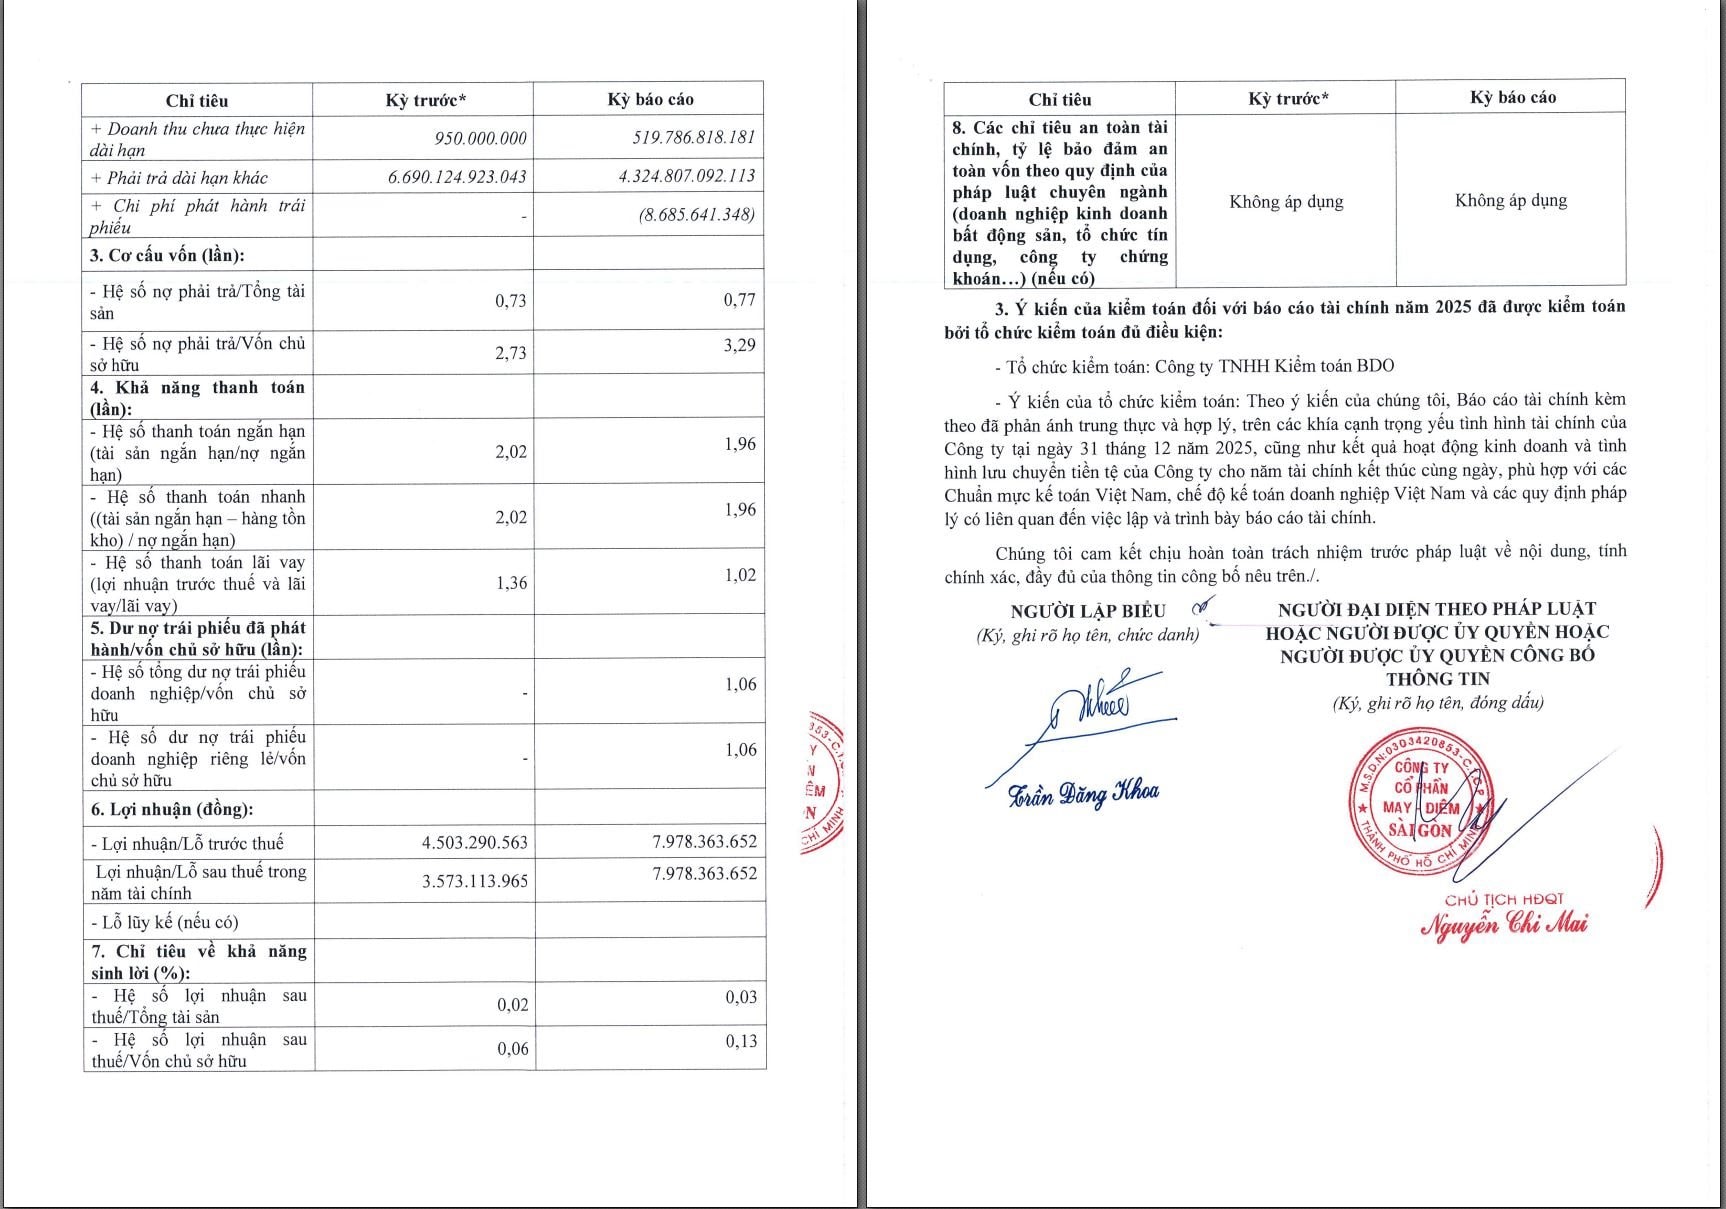 Chỉ tiêu Kỳ trước* Kỳ báo cáo
+ Doanh thu chưa thực hiện
dài hạn 950.000.000 519.786.818.181
+ Phải trả dài hạn khác 6.690.124.923.043 4.324.807.092.113
+ Chi phí phát hành trái
phiếu - (8.685.641.348)
3. Cơ cấu vốn (lần):
- Hệ số nợ phải trả/Tổng tài
sản 0,73 0,77
- Hệ số nợ phải trả/Vốn chủ
sở hữu 2,73 3,29
4. Khả năng thanh toán
(lần):
- Hệ số thanh toán ngắn hạn
(tài sản ngắn hạn/nợ ngắn
hạn) 2,02 1,96
- Hệ số thanh toán nhanh
((tài sản ngắn hạn – hàng tồn
kho) / nợ ngắn hạn) 2,02 1,96
- Hệ số thanh toán lãi vay
(lợi nhuận trước thuế và lãi
vay/lãi vay) 1,36 1,02
5. Dư nợ trái phiếu đã phát
hành/vốn chủ sở hữu (lần):
- Hệ số tổng dư nợ trái phiếu
doanh nghiệp/vốn chủ sở
hữu - 1,06
- Hệ số dư nợ trái phiếu
doanh nghiệp riêng lẻ/vốn
chủ sở hữu - 1,06
6. Lợi nhuận (đồng):
- Lợi nhuận/Lỗ trước thuế 4.503.290.563 7.978.363.652
Lợi nhuận/Lỗ sau thuế trong
năm tài chính 3.573.113.965 7.978.363.652
- Lỗ lũy kế (nếu có)
7. Chỉ tiêu về khả năng
sinh lời (%):
- Hệ số lợi nhuận sau
thuế/Tổng tài sản 0,02 0,03
- Hệ số lợi nhuận sau
thuế/Vốn chủ sở hữu 0,06 0,13
Chỉ tiêu Kỳ trước* Kỳ báo cáo
8. Các chỉ tiêu an toàn tài
chính, tỷ lệ bảo đảm an
toàn vốn theo quy định của
pháp luật chuyên ngành
(doanh nghiệp kinh doanh
bất động sản, tổ chức tín
dụng, công ty chứng
khoán…) (nếu có) Không áp dụng Không áp dụng
3. Ý kiến của kiểm toán đối với báo cáo tài chính năm 2025 đã được kiểm toán
bởi tổ chức kiểm toán đủ điều kiện:
- Tổ chức kiểm toán: Công ty TNHH Kiểm toán BDO
- Ý kiến của tổ chức kiểm toán: Theo ý kiến của chúng tôi, Báo cáo tài chính kèm
theo đã phản ánh trung thực và hợp lý, trên các khía cạnh trọng yếu tình hình tài chính của
Công ty tại ngày 31 tháng 12 năm 2025, cũng như kết quả hoạt động kinh doanh và tình
hình lưu chuyển tiền tệ của Công ty cho năm tài chính kết thúc cùng ngày, phù hợp với các
Chuẩn mực kế toán Việt Nam, chế độ kế toán doanh nghiệp Việt Nam và các quy định pháp
lý có liên quan đến việc lập và trình bày báo cáo tài chính.
Chúng tôi cam kết chịu hoàn toàn trách nhiệm trước pháp luật về nội dung, tính
chính xác, đầy đủ của thông tin công bố nêu trên./.
NGƯỜI LẬP BIỂU
(Ký, ghi rõ họ tên, chức danh)
Trần Đăng Khoa
NGƯỜI ĐẠI DIỆN THEO PHÁP LUẬT
HOẶC NGƯỜI ĐƯỢC ỦY QUYỀN HOẶC
NGƯỜI ĐƯỢC ỦY QUYỀN CÔNG BỐ
THÔNG TIN
(Ký, ghi rõ họ tên, đóng dấu)
M.S.D.N:0303420853-C.T.C.P
CÔNG TY
CỔ PHẦN
MAY - DIÊM
SÀI GÒN
THÀNH PHỐ HỒ CHÍ MINH
CHỦ TỊCH HĐQT
Nguyễn Chi Mai